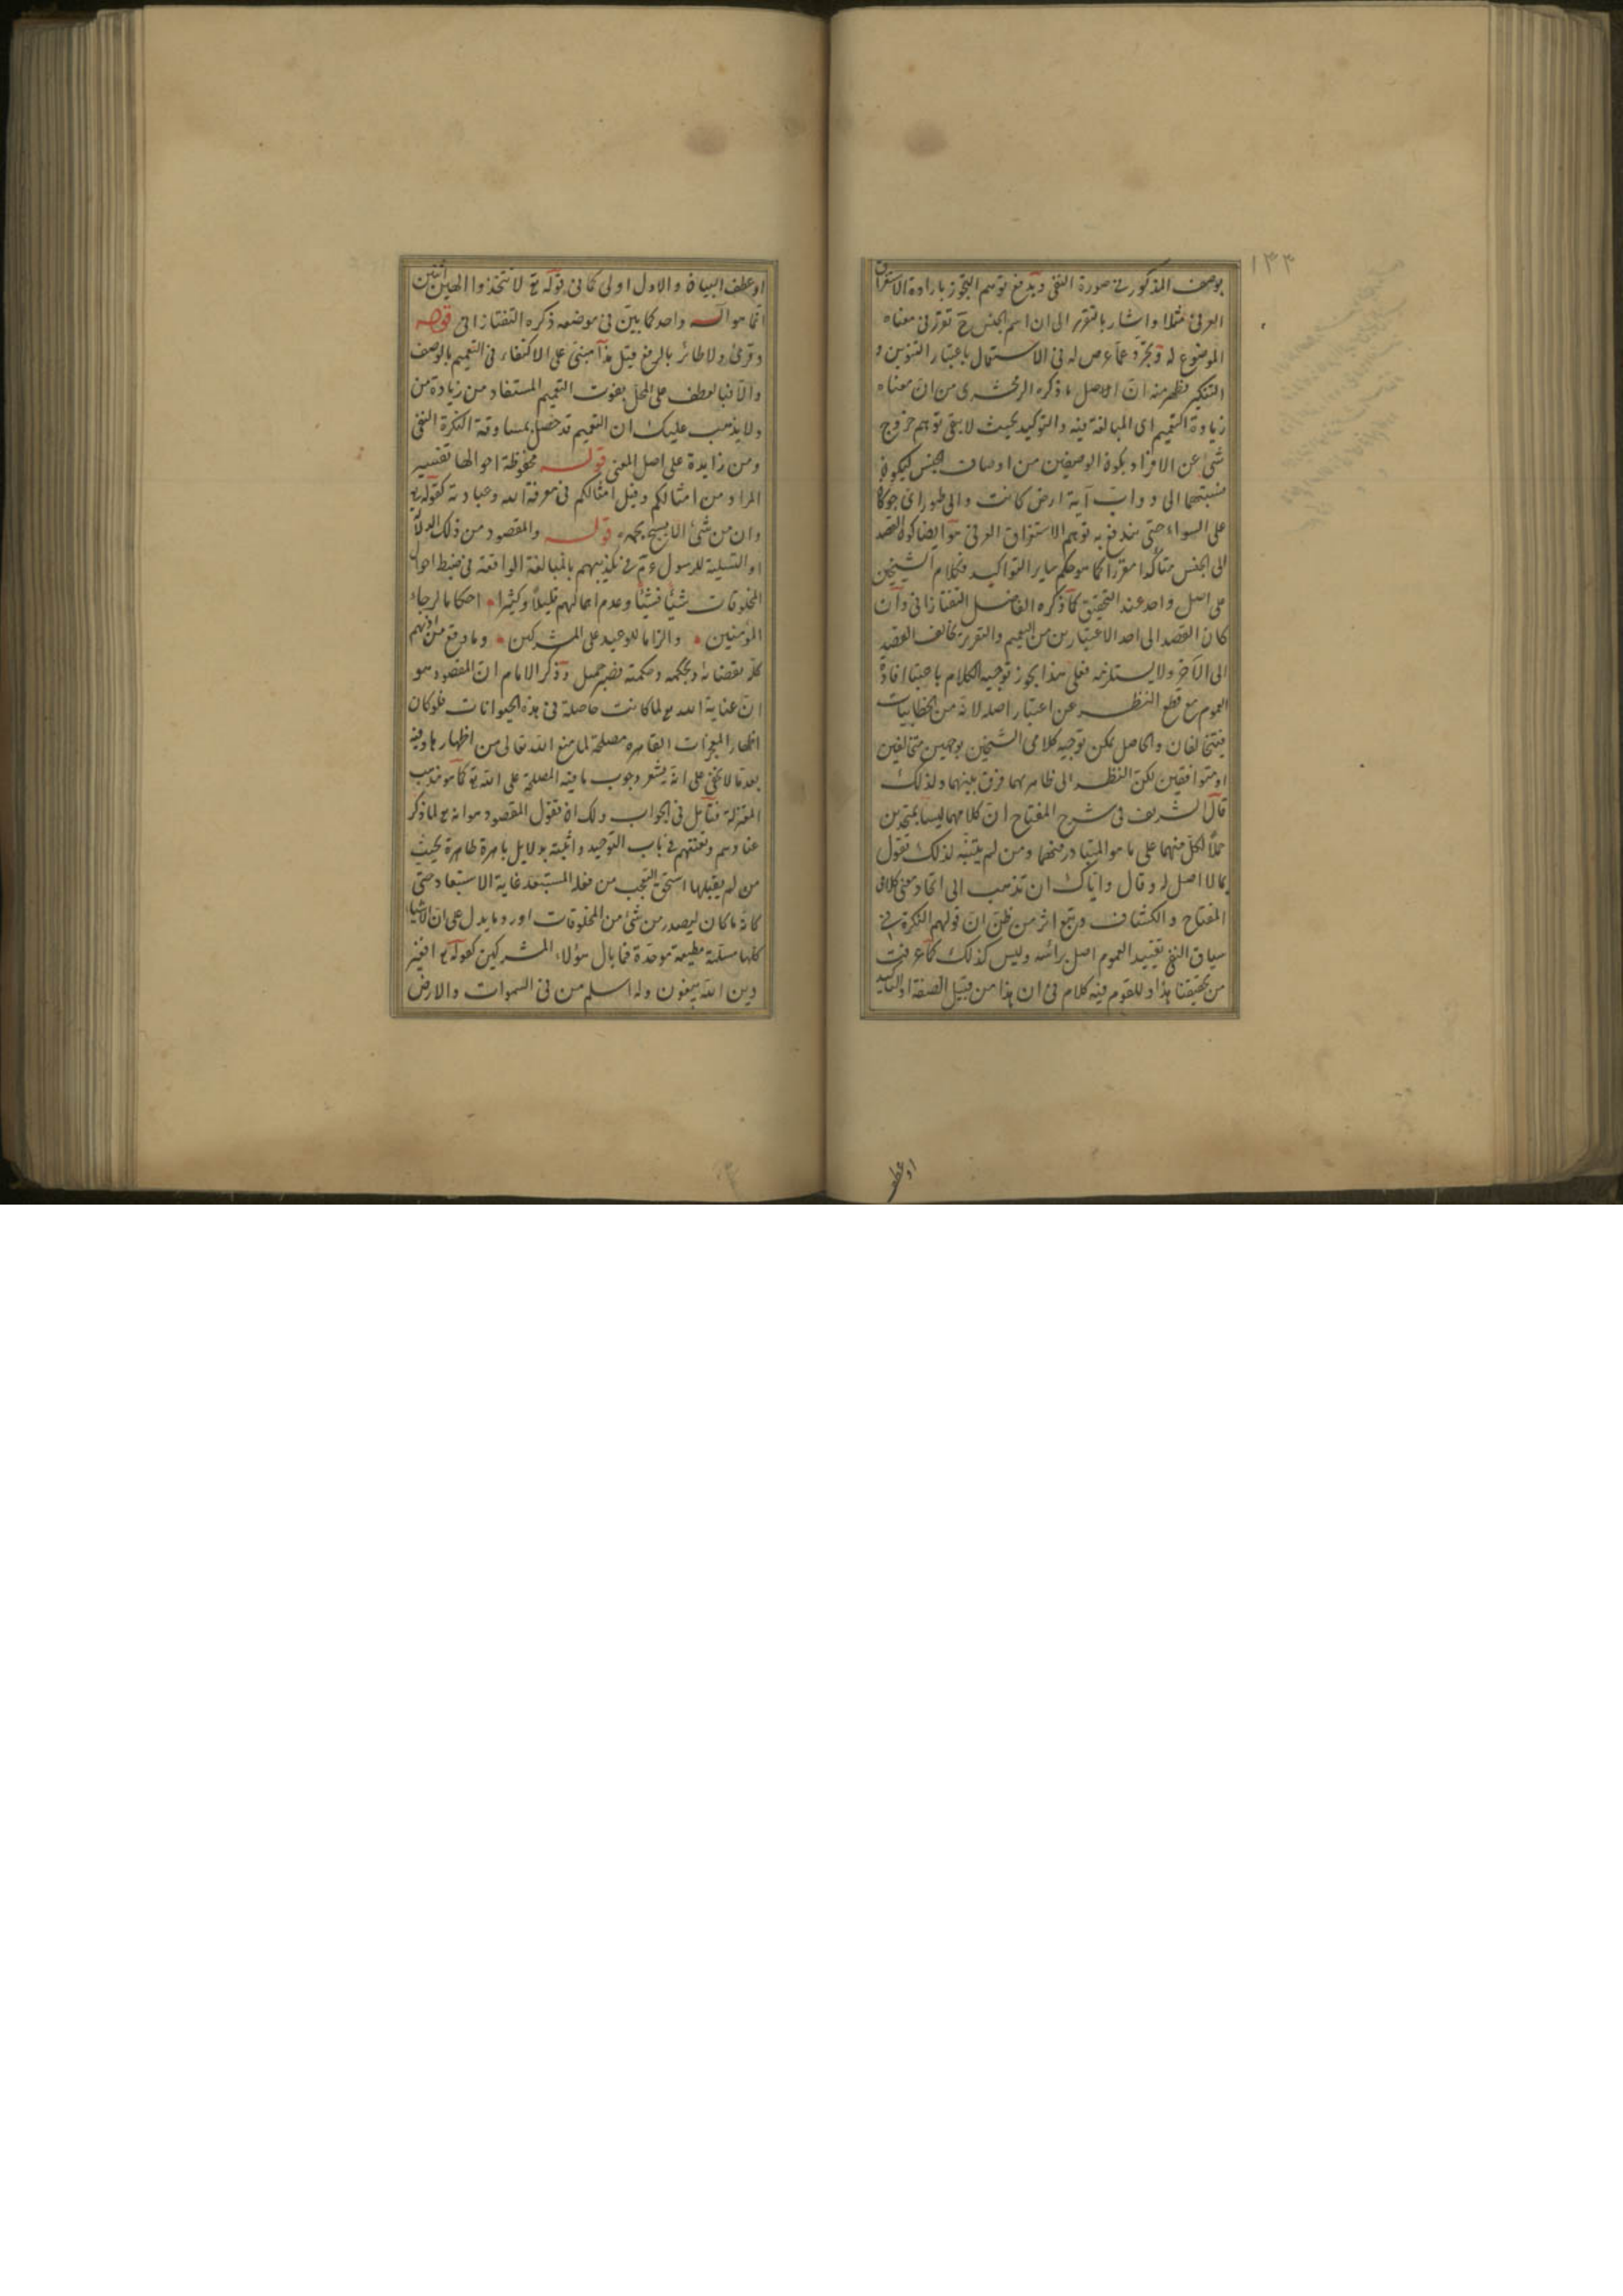 ١٣٣
بوصف المذكور في صورة النفى ويدفع توهم التجوز بارادة الاستغراق
العرفى مثلا واشار بالتقرير الى ان اسم الجنس ح تقرر فى معناه
الموضوع له وتجرد عما عرض له فى الاستعمال باعتبار التنوين و
التنكير فظهر منه ان الاصل ما ذكره الزمخشرى من ان معناه
زيادة التعميم اى المبالغة فيه والتوكيد بحيث لا يبقى توهم خروج
شئ عن الافراد بكون الوصفين من اوصاف الجنس ليكون
نسبتهما الى دواب آية ارض كانت والى طيور اى جو كان
على السواء حتى يندفع به توهم الاستغراق العرفى هو ايضا كون القصد
الى الجنس متأكدا مقررا كما هو حكم ساير التواكيد فكلام الشيخين
على اصل واحد عند التحقيق كما ذكره الفاضل التفتازانى وان
كان القصد الى احد الاعتبارين من التعميم والتقرير يخالف القصد
الى الآخر ولا يستلزمه فعلى هذا يجوز توجيه الكلام باعتبار افادة
العموم مع قطع النظر عن اعتبار اصله لانه من الخطابيات
فيتخالفان والحاصل يمكن توجيه كلامى الشيخين بوجهين متخالفين
او متوافقين لكن النظر الى ظاهرهما فرق بينهما ولذلك
قال الشريف فى شرح المفتاح ان كلامهما ليسا بمتحدين
حملا لكل منهما على ما هو المتبادر منهما ومن لم يتنبه لذلك تقول
بما لا اصل له وقال واياك ان تذهب الى اتحاد معنى كلامى
المفتاح والكشاف وتتبع اثر من ظن ان قولهم النكرة فى
سياق النفى تفيد العموم اصل براسه وليس كذلك كما عرفت
من تحقيقنا هذا وللقوم فيه كلام فى ان هذا من قبيل الصفة او التاكيد
او عطف
او عطف البيان والاول اولى كما فى قوله تع لا تتخذوا الهين اثنين
انما هو اله واحد كما بين فى موضعه ذكره التفتازانى قوله
وقرئ ولا طائر بالرفع قيل هذا مبنى على الاكتفاء فى التعميم بالوصف
والا فبالعطف على المحل يفوت التعميم المستفاد من زيادة من
ولا يذهب عليك ان التعميم قد حصل بمساوقة النكرة النفى
ومن زايدة على اصل المعنى قوله محفوظة احوالها تفسير
المراد من امثالكم وقيل امثالكم فى معرفة الله وعبادته كقوله تع
وان من شئ الا يسبح بحمده قوله والمقصود من ذلك الدلالة
او التسلية للرسول عم فى تكذيبهم بالمبالغة الواقعة فى ضبط احوال
المخلوقات شيئا فشيئا وعدم اهمالهم قليلا وكثيرا احكاما لرجاء
المؤمنين والزاما للوعيد على المشركين وما وقع من اذيهم
كله بقضائه وبحكمه وحكمته فصبر جميل وذكر الامام ان المقصود هو
ان عناية الله تع لما كانت حاصلة فى هذه الحيوانات فلو كان
اظهار المعجزات القاهرة مصلحة لما منع الله تعالى من اظهارها وفيه
بعد ما لا يخفى على انه يشعر وجوب ما فيه المصلحة على الله تع كما هو مذهب
المعتزلة فتأمل فى الجواب ولك ان تقول المقصود هو انه تع لما ذكر
عنادهم وتعنتهم فى باب التوحيد واثبته بدلايل باهرة ظاهرة بحيث
من لم يقبلها استحق التعجب من فعله المستبعد غاية الاستبعاد حتى
كانه ما كان ليصدر من شئ من المخلوقات اورد ما يدل على ان الاشياء
كلها مسلمة مطيعة موحدة فما بال هؤلاء المشركين كقوله تع افغير
دين الله يبغون وله اسلم من فى السموات والارض